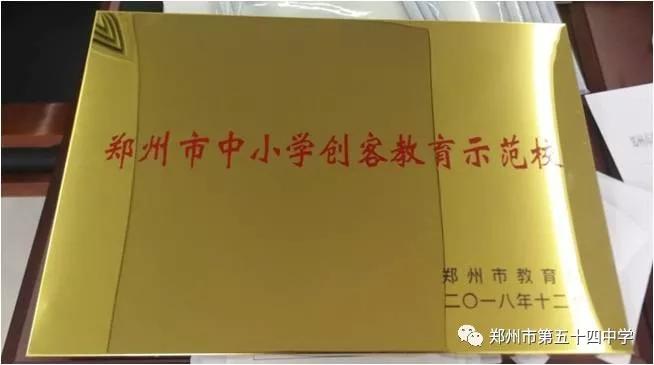 郑州市中小学创客教育示范校
郑州市教育
二〇一八年十二
郑州市第五十四中学